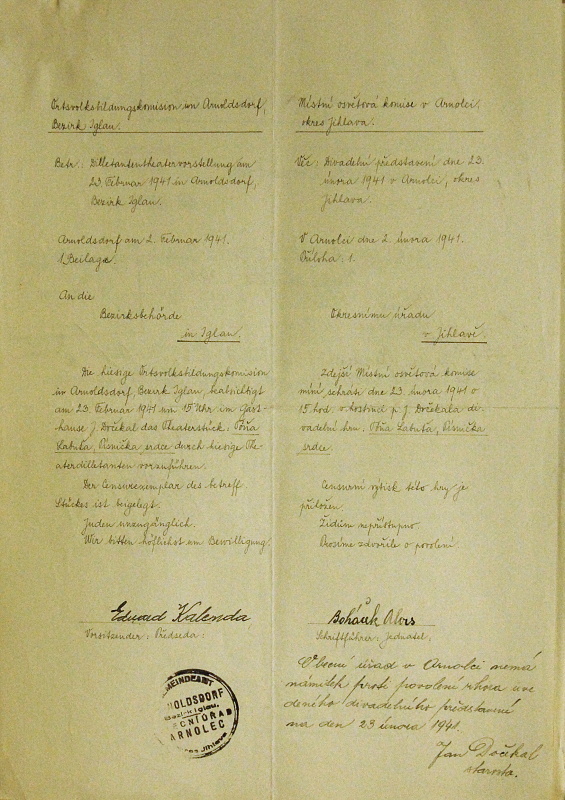 Ortsvolksbildungskomision in Arnoldsdorf,
Bezirk Iglau.
Betr.: Dilletantentheatervorstellung am
23 Februar 1941 in Arnoldsdorf,
Bezirk Iglau.
Arnoldsdorf am 2. Februar 1941.
1 Beilage.
An die
Bezirksbehörde
in Iglau.
Die hiesige Ortsvolksbildungskomision
in Arnoldsdorf, Bezirk Iglau, beabsichtigt
am 23 Februar 1941 um 15 Uhr im Gast-
hause J. Dočkal das Theaterstück:
, Písnička srdce durch hiesige The-
aterdilletanten vorzuführen.
Der Censurexemplar des betreff.
Stückes ist beigelegt.
Juden unzugänglich.
Wir bitten höflichst um Bewilligung.
Eduard Kalenda
Vorsitzender: Předseda:
Místní osvětová komise v Arnolci,
okres Jihlava.
Věc: Divadelní představení dne 23.
února 1941 v Arnolci, okres
Jihlava.
V Arnolci dne 2. února 1941.
Příloha: 1.
Okresnímu úřadu
v Jihlavě.
Zdejší Místní osvětová komise
míní sehráti dne 23. února 1941 o
15 hod. v hostinci p. J. Dočkala di-
vadelní hru: Písnička
srdce.
Censurní výtisk této hry je
přiložen.
Židům nepřístupno.
Prosíme zdvořile o povolení.
Boháček Alois
Schriftführer: Jednatel:
Obecní úřad v Arnolci nemá
námitek proti povolení shora uve
deného divadelního představení
na den 23 února 1941.
Jan Dočkal
starosta.
MEINDEAMT
NOLDSDORF
Bezirk Iglau,
ECNÍ ÚŘAD
ARNOLEC
Jihlava